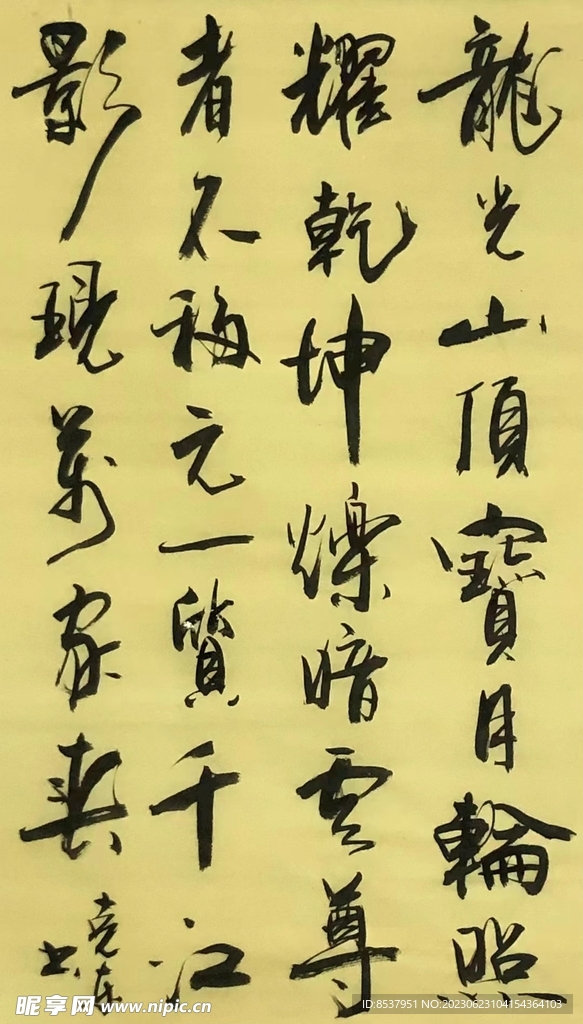 龍光山頂寶月輪照
耀乾坤爍暗云尊
者不移元一質千江
影現萬家春
书
昵享网 www.nipic.cn
ID:8537951 NO:20230623104154364103